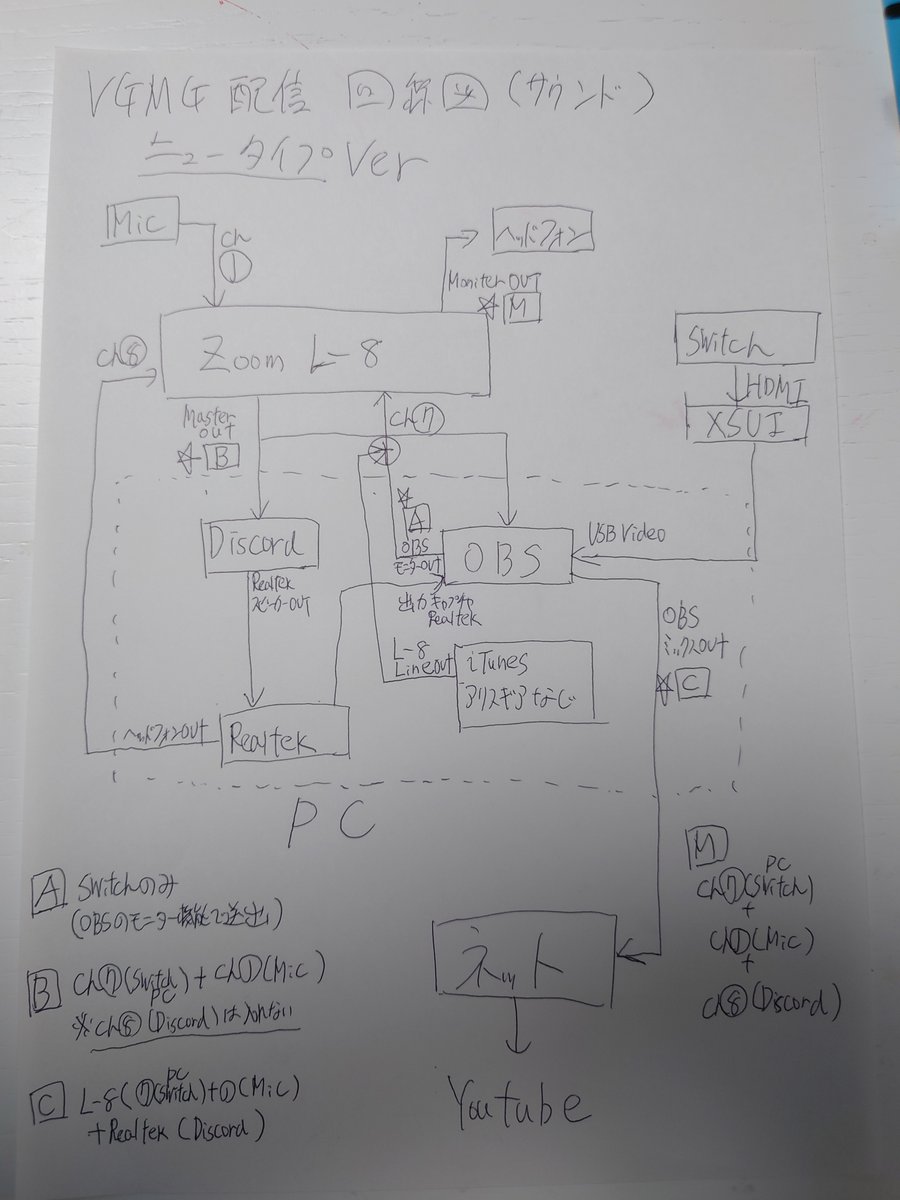 VGMG 配信 回路図 (サウンド)
ニュータイプ Ver
Mic
ch
①
ヘッドフォン
Moniter OUT
☆ M
Zoom L-8
ch⑧
Switch
HDMI
XSUI
Master
OUT
☆ B
ch⑦
☆
A
OBS
モニターOUT
Discord
OBS
USB Video
Realtek
スピーカーOUT
出力キャプチャ
Realtek
OBS
ミックスOUT
☆ C
L-8
Lineout
iTunes
アリスギアなど
ヘッドフォンOUT
Realtek
PC
A Switchのみ
(OBSのモニター機能で送出)
B ch⑦(Switch)+ch①(Mic)
PC
※ch⑧(Discord)は入れない
C L-8(⑦(Switch)+①(Mic)
PC
+Realtek(Discord)
M
PC
ch⑦(Switch)
+
ch①(Mic)
+
ch⑧(Discord)
ネット
Youtube